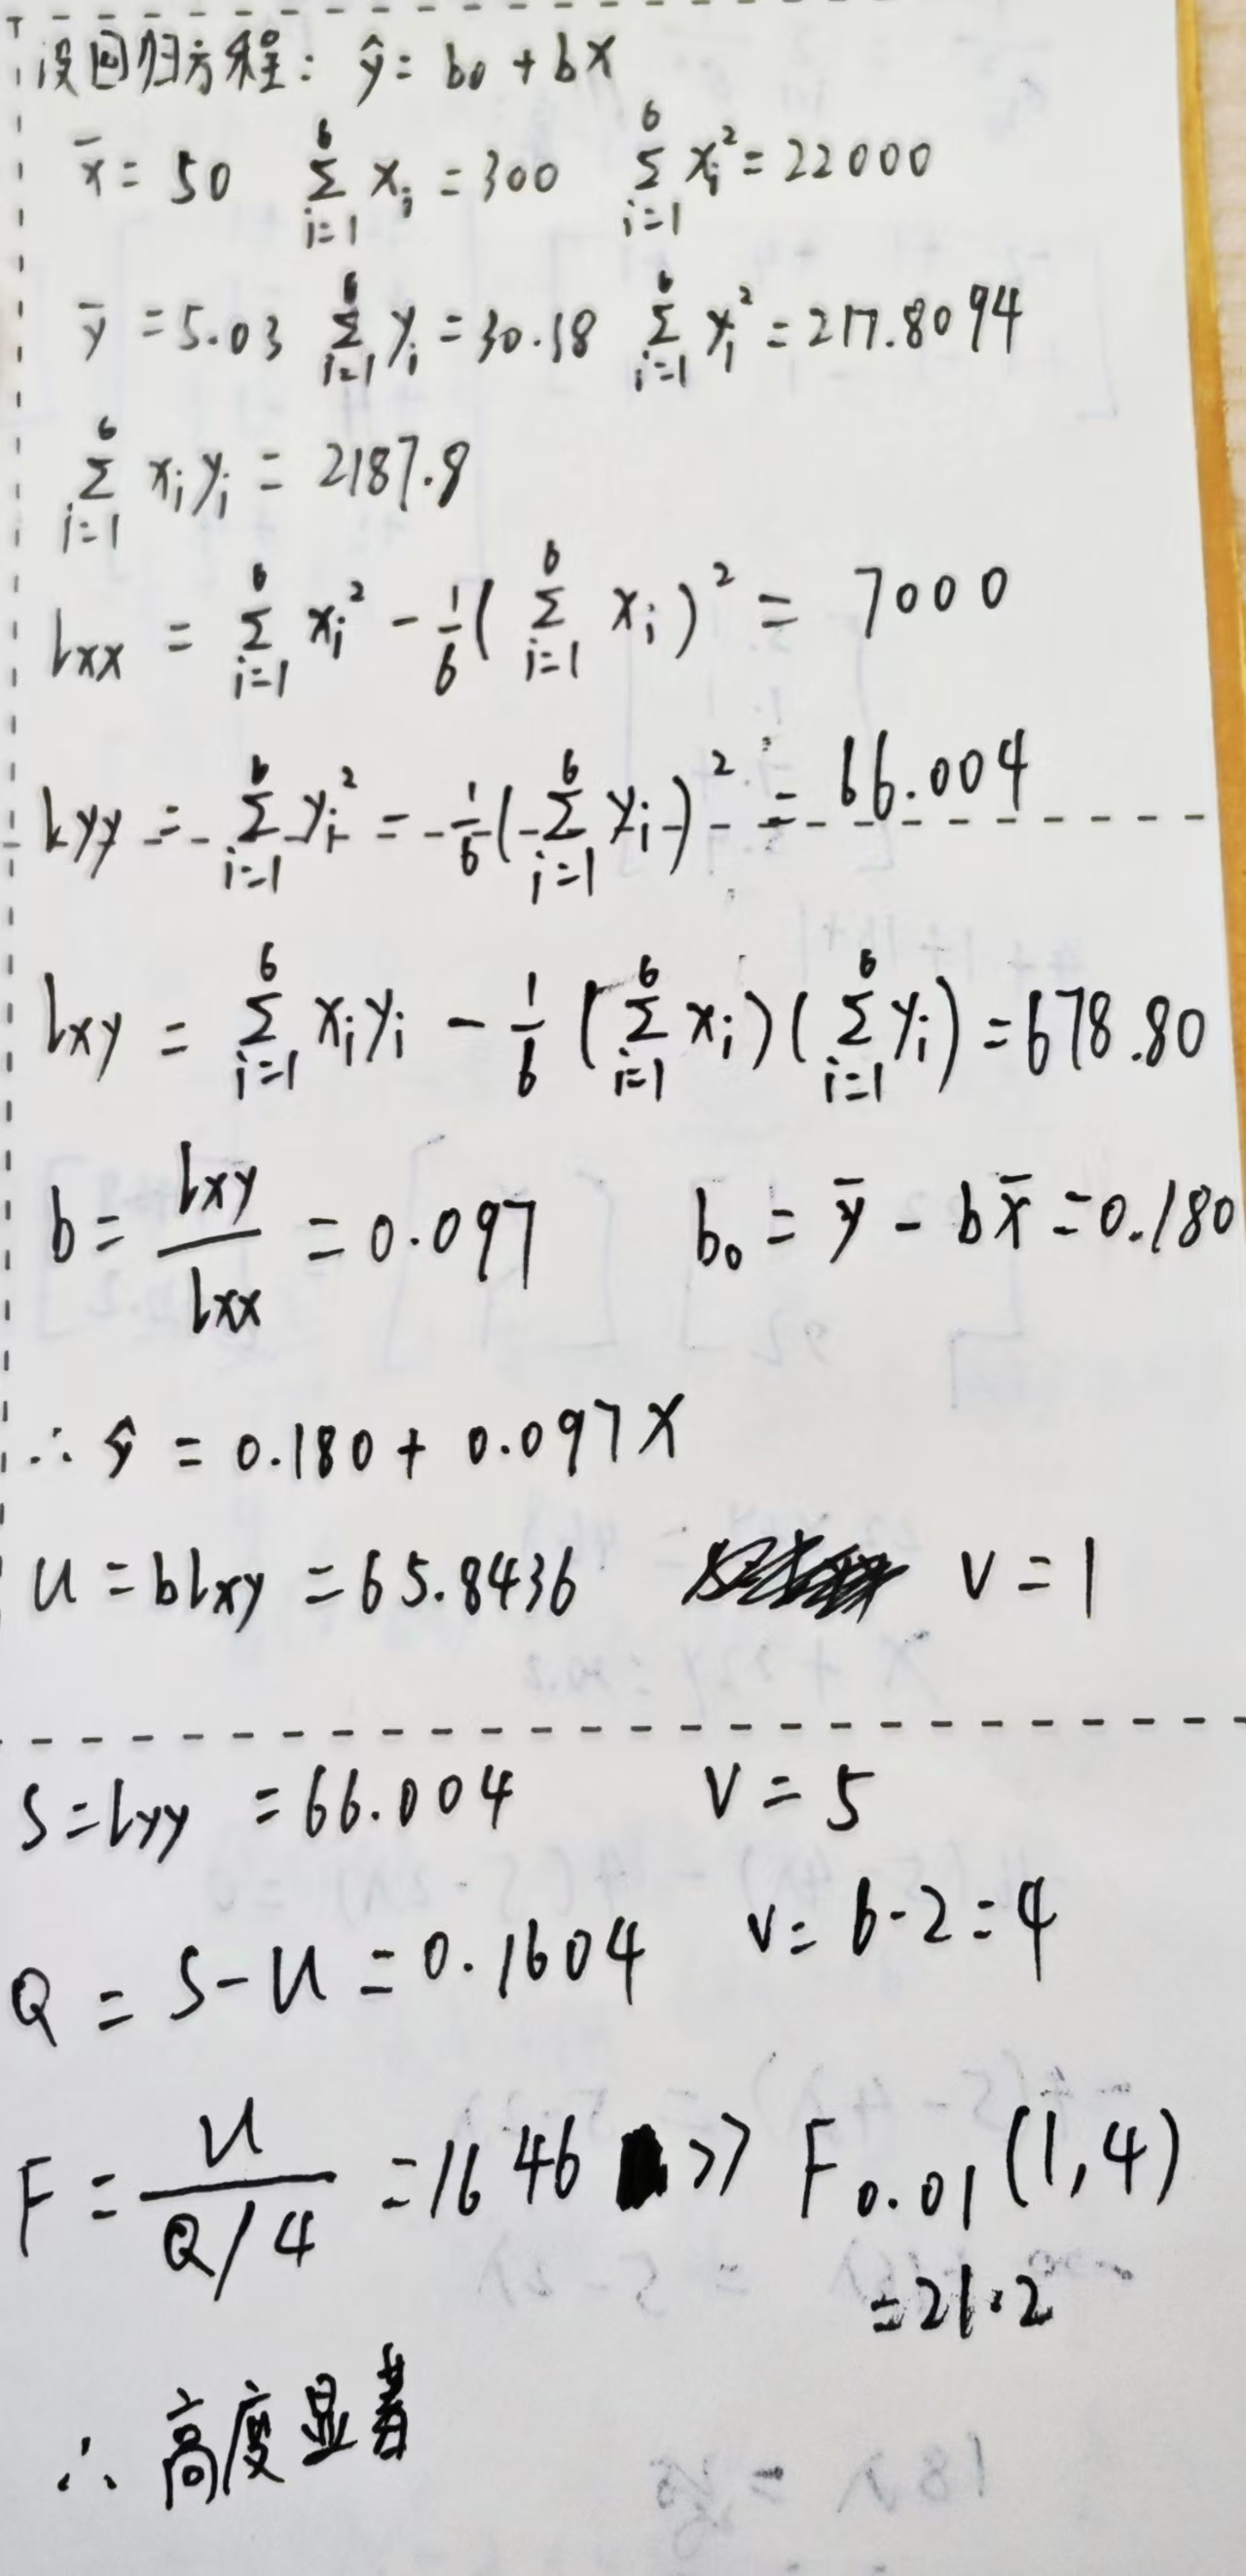 设回归方程: ŷ = b₀ + bx
x̄ = 50 ∑_{i=1}^{6} xᵢ = 300 ∑_{i=1}^{6} xᵢ² = 22000
ȳ = 5.03 ∑_{i=1}^{6} yᵢ = 30.18 ∑_{i=1}^{6} yᵢ² = 217.8094
∑_{i=1}^{6} xᵢyᵢ = 2187.8
lxx = ∑_{i=1}^{6} xᵢ² - 1/6 (∑_{i=1}^{6} xᵢ)² = 7000
lyy = ∑_{i=1}^{6} yᵢ² = 1/6 (∑_{i=1}^{6} yᵢ)² = 66.004
lxy = ∑_{i=1}^{6} xᵢyᵢ - 1/6 (∑_{i=1}^{6} xᵢ)(∑_{i=1}^{6} yᵢ) = 678.80
b = lxy/lxx = 0.097 b₀ = ȳ - bx̄ = 0.180
∴ ŷ = 0.180 + 0.097x
U = blxy = 65.8436 V = 1
S = lyy = 66.004 V = 5
Q = S - U = 0.1604 V = 6-2 = 4
F = U/(Q/4) = 1646 >> F₀.₀₁(1,4)
= 21.2
∴ 高度显著